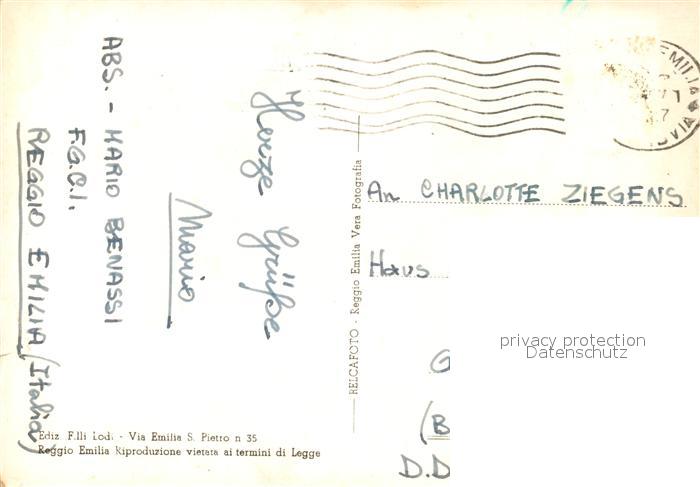 ABS. - MARIO BENASSI
F.G.C.I.
REGGIO EMILIA (Italia)
Herze Grüße
Mario
RELCAFOTO - Reggio Emilia Vera Fotografia
EMILIA
An CHARLOTTE ZIEGENS
Haus
G
(B
D.D
privacy protection
Datenschutz
Ediz F.lli Lodi - Via Emilia S. Pietro n 35
Reggio Emilia Riproduzione vietata ai termini di Legge